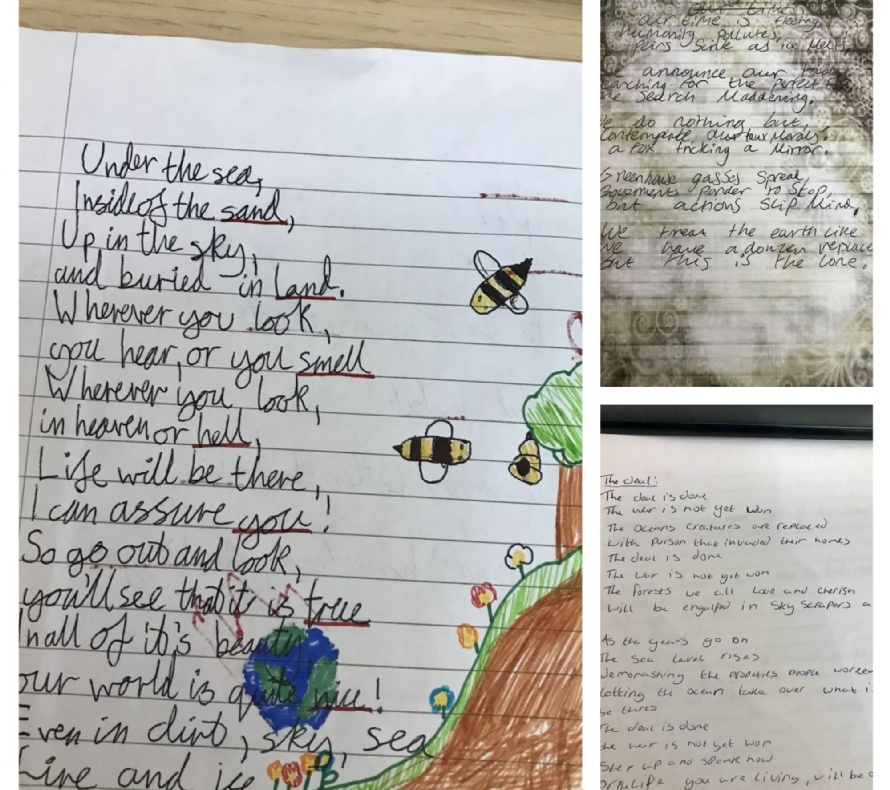 Under the sea,
Inside of the sand,
Up in the sky,
and buried in land.
Wherever you look,
you hear, or you smell
Wherever you look,
in heaven or hell,
Life will be there,
I can assure you!
So go out and look,
you'll see that it is true
In all of it's beauty
our world is quite nice!
Even in dirt, sky, sea
and ice
Our time
our time is fleeting
humanity pollutes,
as ice melts,
announce our
for the perfect
Search Maddening.
do nothing but,
Contemplate our faux Morals.
a Fox tricking a Mirror.
Greenhouse gasses Spread,
Governments Ponder to Stop,
but actions Slip Mind,
We treat the earth like
We have a donzen
but this is the lone.
The deal:
The deal is done
The war is not yet won
The oceans creatures are replaced
with poison that invaded their homes
The deal is done
The war is not yet won
The forests we all love and cherish
will be engulfed in Sky Scrapers a
As the years go on
The sea level rises
the people
the ocean take over what
be
The deal is done
the war is not yet won
Step up and speak now
you are living, will be